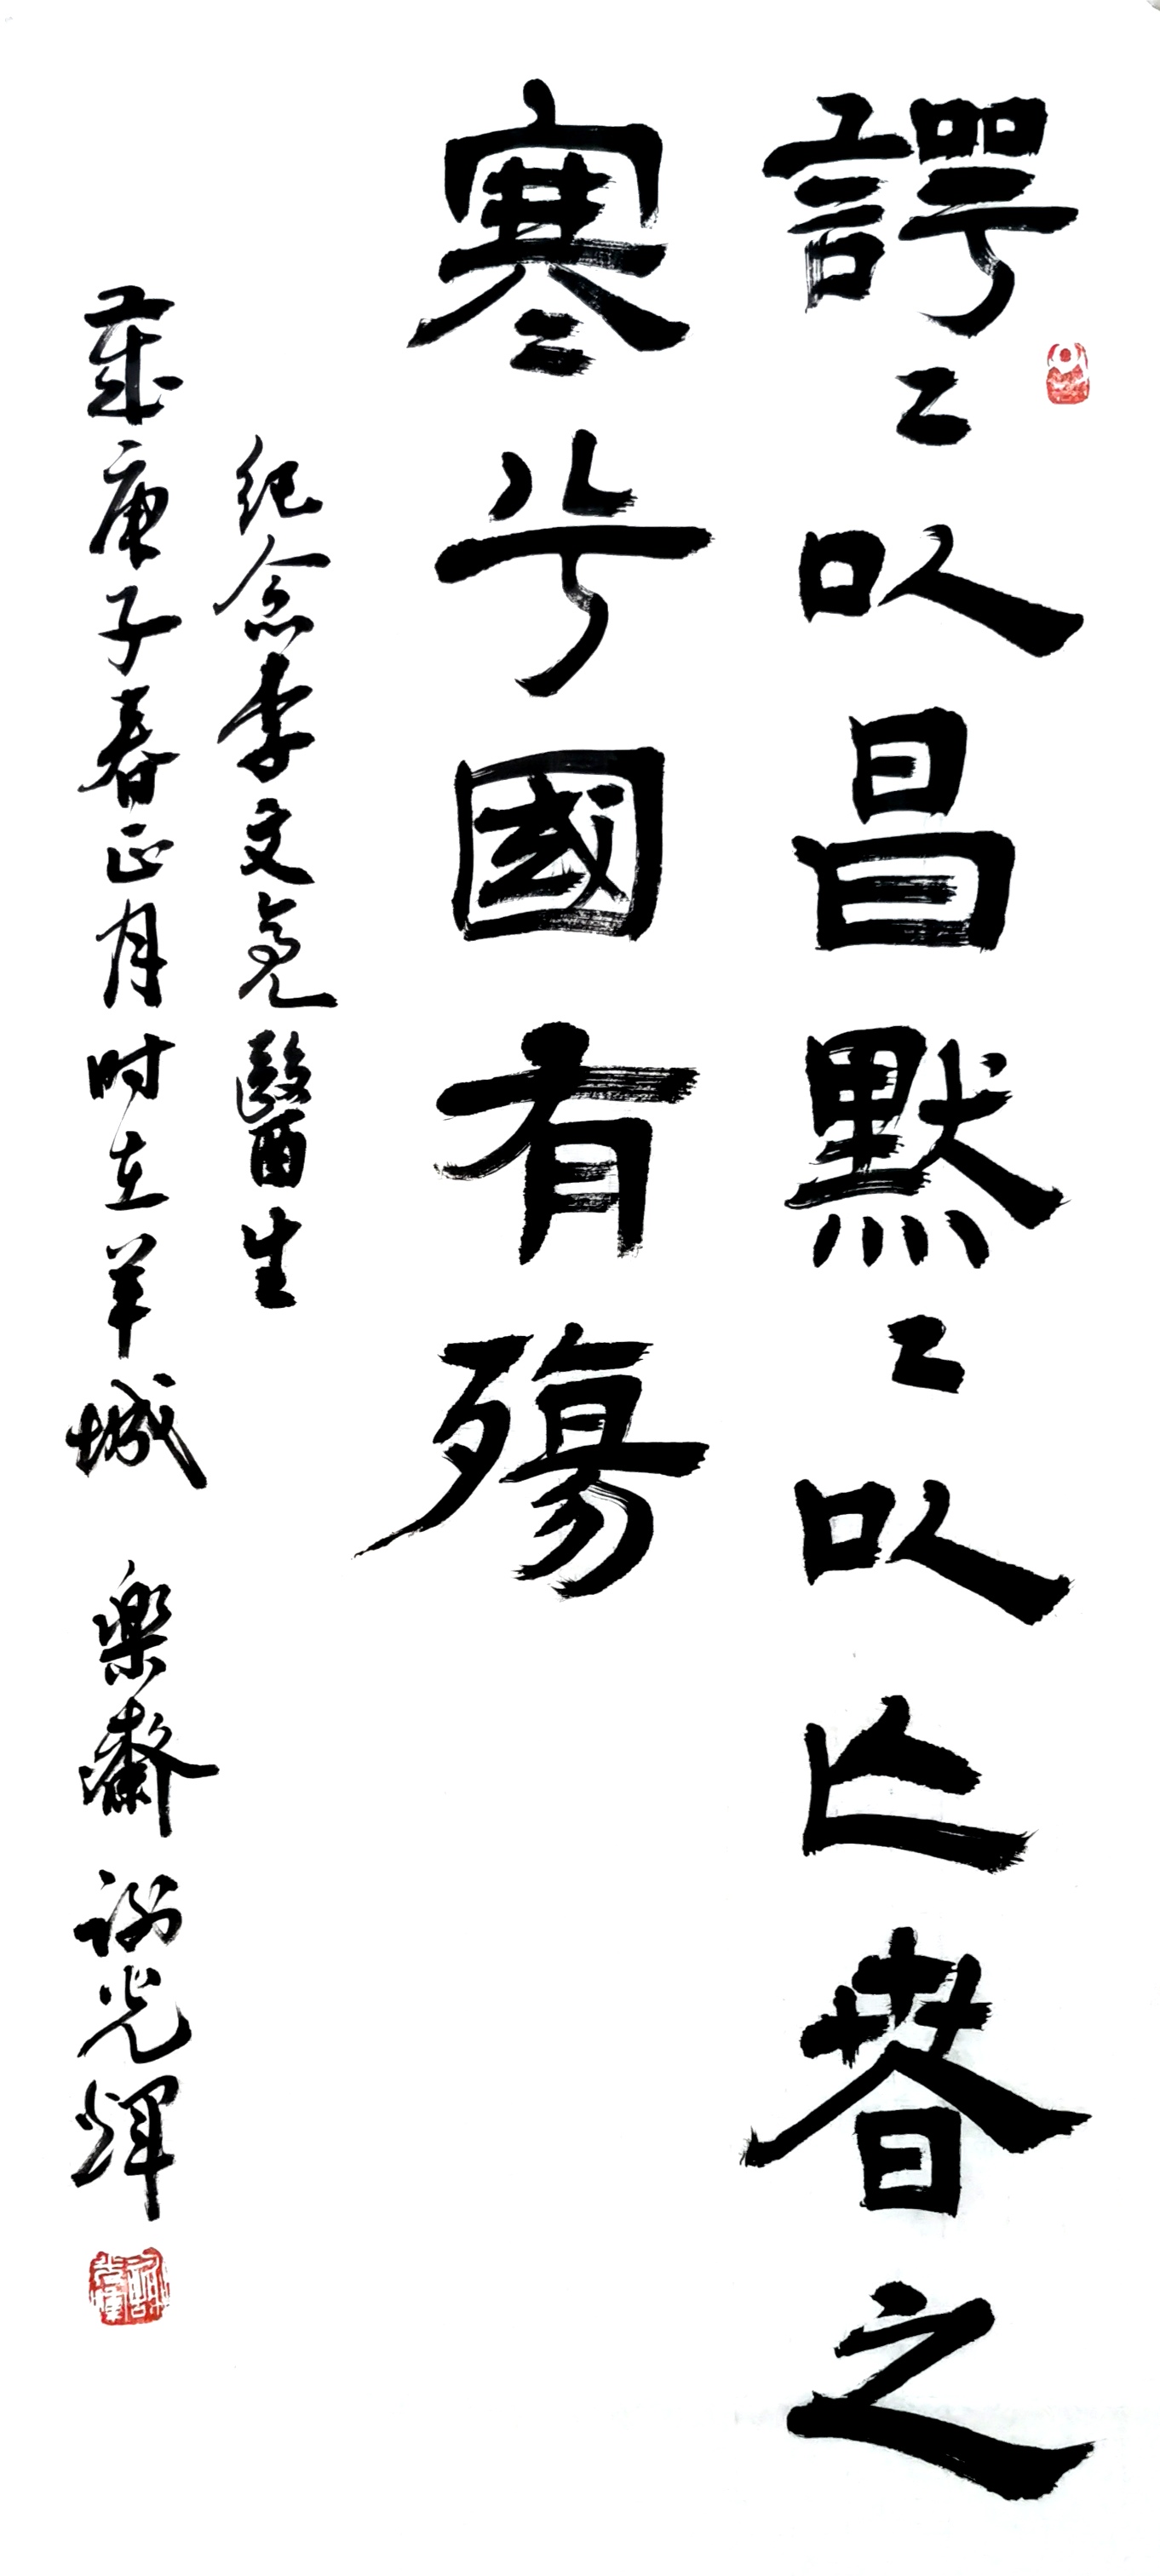 諤〻以昌默〻以亡春之
寒兮國有殤
纪念李文亮醫生
歲庚子春正月时在羊城 樂齋 谢光輝